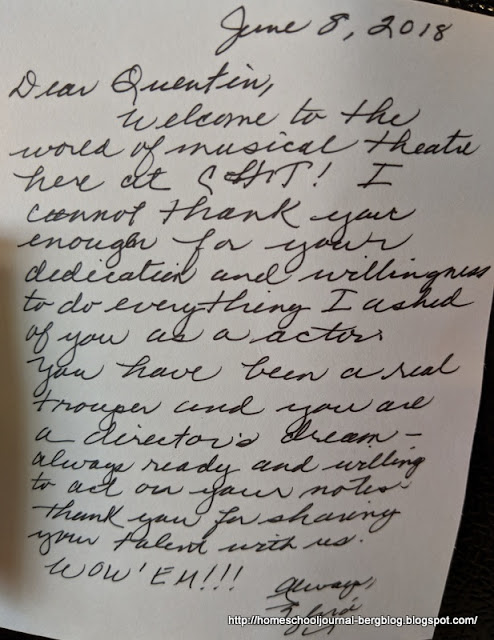 June 8, 2018
Dear Quentin,
Welcome to the
world of musical theatre
here at CHT! I
cannot thank your
enough for your
dedication and willingness
to do everything I asked
of you as a actor.
You have been a real
trouper and you are
a director's dream –
always ready and willing
to act on your notes.
Thank you for sharing
your talent with us.
WOW 'EM!!!
Always,
http://homeschooljournal-bergblog.blogspot.com/